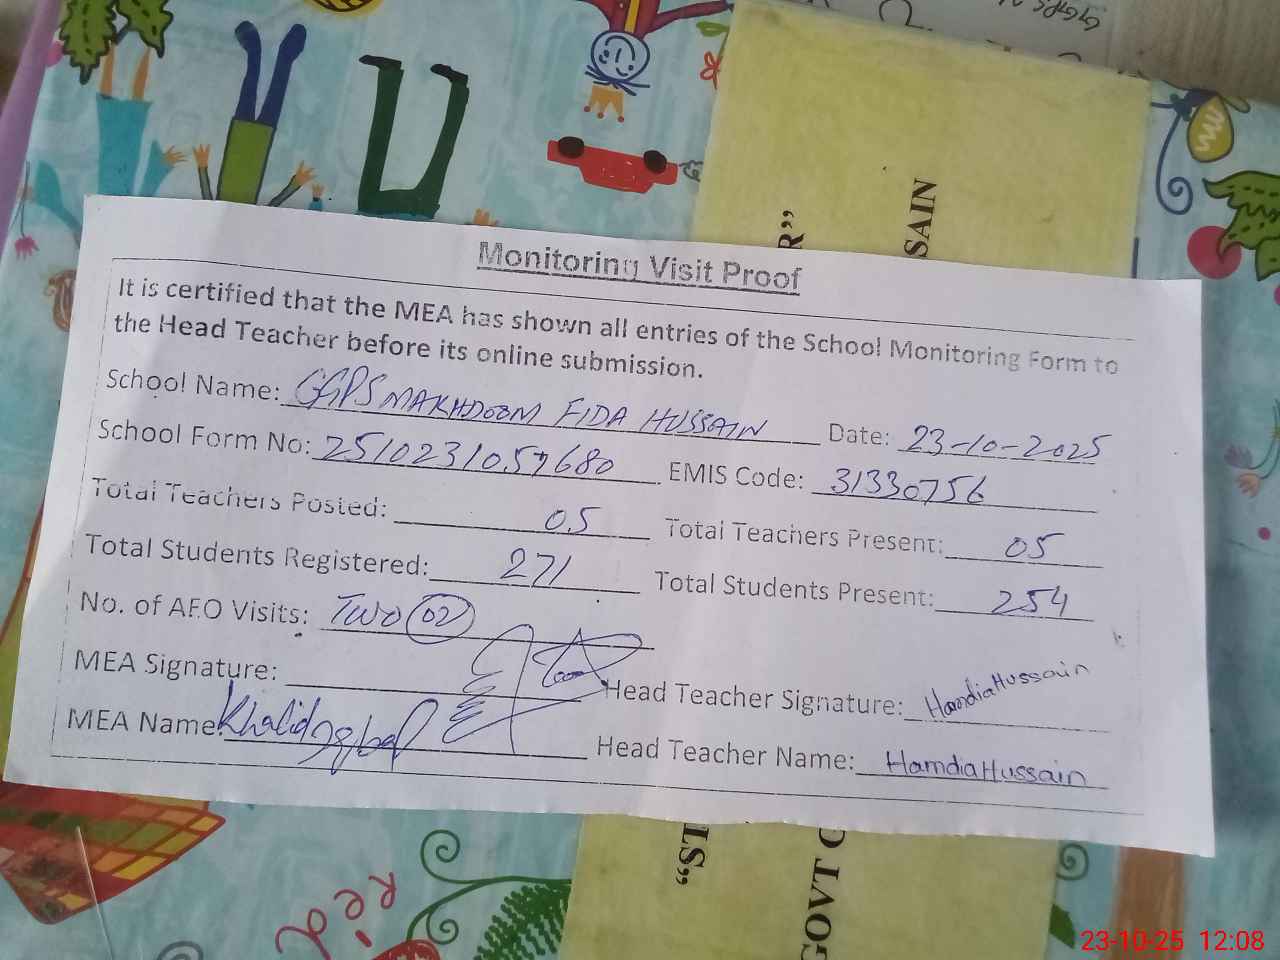 R”
SAIN
Monitoring Visit Proof
It is certified that the MEA has shown all entries of the School Monitoring Form to
the Head Teacher before its online submission.
School Name: GGPS MAKHDOOM FIDA HUSSAIN Date: 23-10-2025
School Form No: 2510231057680 EMIS Code: 31330756
Total Teachers Posted: 05 Total Teachers Present: 05
Total Students Registered: 271 Total Students Present: 254
No. of AEO Visits: Two 02
MEA Signature: Head Teacher Signature: Hamdia Hussain
MEA Name: Khalid Iqbal Head Teacher Name: Hamdia Hussain
“ST
GOVT G
red
23-10-25 12:08